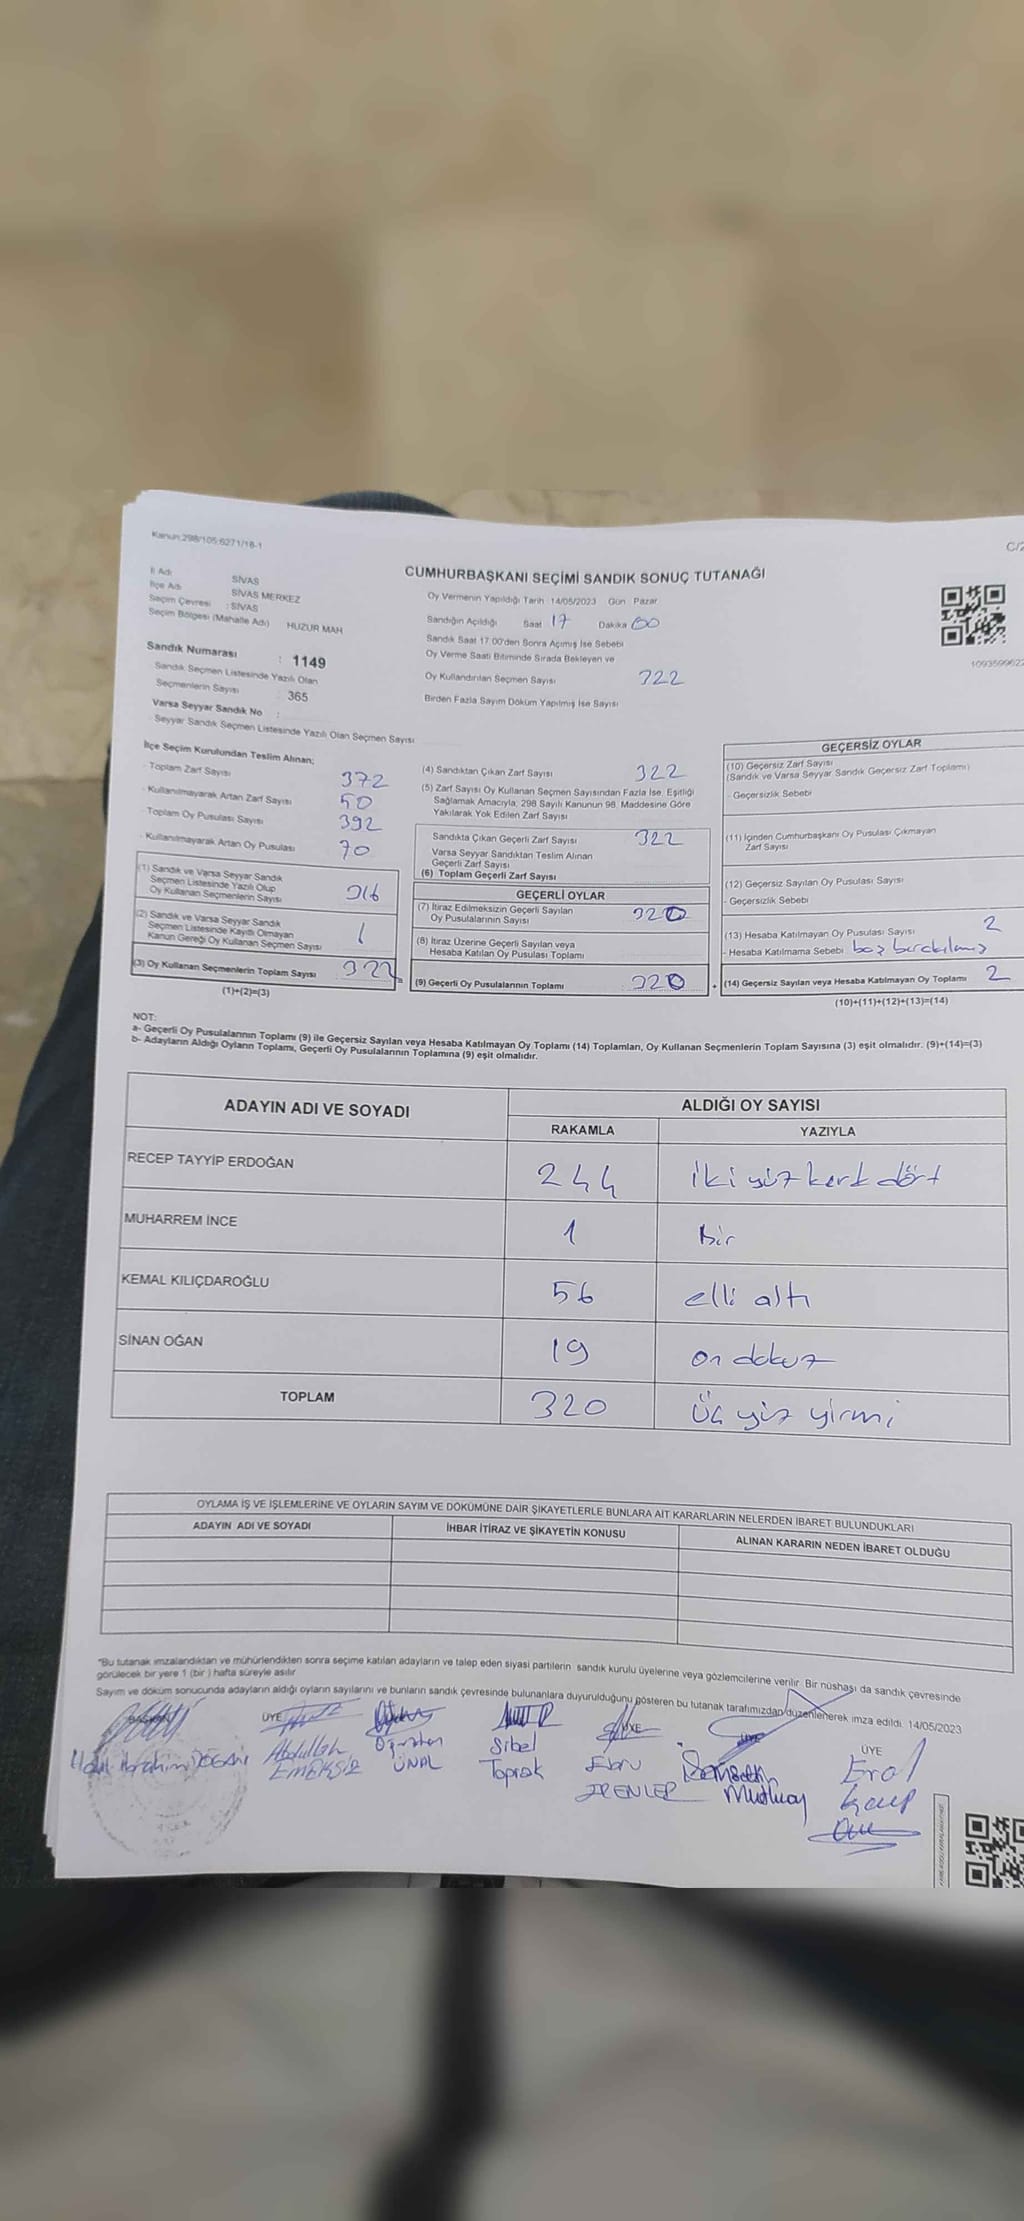 Kanun:298/105:6271/18-1
C/2
CUMHURBAŞKANI SEÇİMİ SANDIK SONUÇ TUTANAĞI
İl Adı SİVAS
İlçe Adı SİVAS MERKEZ
Seçim Çevresi : SİVAS
Seçim Bölgesi (Mahalle Adı) HUZUR MAH
Sandık Numarası : 1149
Sandık Seçmen Listesinde Yazılı Olan
Seçmenlerin Sayısı 365
Varsa Seyyar Sandık No :
Seyyar Sandık Seçmen Listesinde Yazılı Olan Seçmen Sayısı
Oy Vermenin Yapıldığı Tarih 14/05/2023 Gün Pazar
Sandığın Açıldığı Saat 17 Dakika 00
Sandık Saat 17.00'den Sonra Açımış İse Sebebi
Oy Verme Saati Bitiminde Sırada Bekleyen ve
Oy Kullandırılan Seçmen Sayısı 322
Birden Fazla Sayım Döküm Yapılmış İse Sayısı
İlçe Seçim Kurulundan Teslim Alınan;
- Toplam Zarf Sayısı 372
- Kullanılmayarak Artan Zarf Sayısı 50
Toplam Oy Pusulası Sayısı 392
- Kullanılmayarak Artan Oy Pusulası 70
(1) Sandık ve Varsa Seyyar Sandık
Seçmen Listesinde Yazılı Olup
Oy Kullanan Seçmenlerin Sayısı 316
(2) Sandık ve Varsa Seyyar Sandık
Seçmen Listesinde Kayıtlı Olmayan
Kanun Gereği Oy Kullanan Seçmen Sayısı
(3) Oy Kullanan Seçmenlerin Toplam Sayısı 322
(1)+(2)=(3)
(4) Sandıktan Çıkan Zarf Sayısı 322
(5) Zarf Sayısı Oy Kullanan Seçmen Sayısından Fazla İse, Eşitliği
Sağlamak Amacıyla, 298 Sayılı Kanunun 98. Maddesine Göre
Yakılarak Yok Edilen Zarf Sayısı
Sandıkta Çıkan Geçerli Zarf Sayısı 322
Varsa Seyyar Sandıktan Teslim Alınan
Geçerli Zarf Sayısı
(6) Toplam Geçerli Zarf Sayısı
GEÇERLİ OYLAR
(7) İtiraz Edilmeksizin Geçerli Sayılan
Oy Pusulalarının Sayısı 320
(8) İtiraz Üzerine Geçerli Sayılan veya
Hesaba Katılan Oy Pusulası Toplamı
(9) Geçerli Oy Pusulalarının Toplamı 320
GEÇERSİZ OYLAR
(10) Geçersiz Zarf Sayısı
(Sandık ve Varsa Seyyar Sandık Geçersiz Zarf Toplamı)
- Geçersizlik Sebebi
(11) İçinden Cumhurbaşkanı Oy Pusulası Çıkmayan
Zarf Sayısı
(12) Geçersiz Sayılan Oy Pusulası Sayısı
- Geçersizlik Sebebi
(13) Hesaba Katılmayan Oy Pusulası Sayısı 2
- Hesaba Katılmama Sebebi boş bırakılmış
(14) Geçersiz Sayılan veya Hesaba Katılmayan Oy Toplamı 2
(10)+(11)+(12)+(13)=(14)
NOT:
a- Geçerli Oy Pusulalarının Toplamı (9) ile Geçersiz Sayılan veya Hesaba Katılmayan Oy Toplamı (14) Toplamları, Oy Kullanan Seçmenlerin Toplam Sayısına (3) eşit olmalıdır. (9)+(14)=(3)
b- Adayların Aldığı Oyların Toplamı, Geçerli Oy Pusulalarının Toplamına (9) eşit olmalıdır.
ADAYIN ADI VE SOYADI ALDIĞI OY SAYISI
RAKAMLA YAZIYLA
RECEP TAYYİP ERDOĞAN 244 iki yüz kırk dört
MUHARREM İNCE 1 bir
KEMAL KILIÇDAROĞLU 56 elli altı
SİNAN OĞAN 19 on dokuz
TOPLAM 320 üç yüz yirmi
OYLAMA İŞ VE İŞLEMLERİNE VE OYLARIN SAYIM VE DÖKÜMÜNE DAİR ŞİKAYETLERLE BUNLARA AİT KARARLARIN NELERDEN İBARET BULUNDUKLARI
ADAYIN ADI VE SOYADI İHBAR İTİRAZ VE ŞİKAYETİN KONUSU ALINAN KARARIN NEDEN İBARET OLDUĞU
"Bu tutanak imzalandıktan ve mühürlendikten sonra seçime katılan adayların ve talep eden siyasi partilerin sandık kurulu üyelerine veya gözlemcilerine verilir. Bir nüshası da sandık çevresinde
görülecek bir yere 1 (bir) hafta süreyle asılır
Sayım ve döküm sonucunda adayların aldığı oyların sayılarını ve bunların sandık çevresinde bulunanlara duyurulduğunu gösteren bu tutanak tarafımızdan düzenlenerek imza edildi. 14/05/2023
BAŞKAN ÜYE ÜYE ÜYE ÜYE
Halil İbrahim DOĞAN Abdullah Oğuzhan Sibel Ebru Erol
EMEKSİZ ÜNAL Toprak ERENLER Mutluay